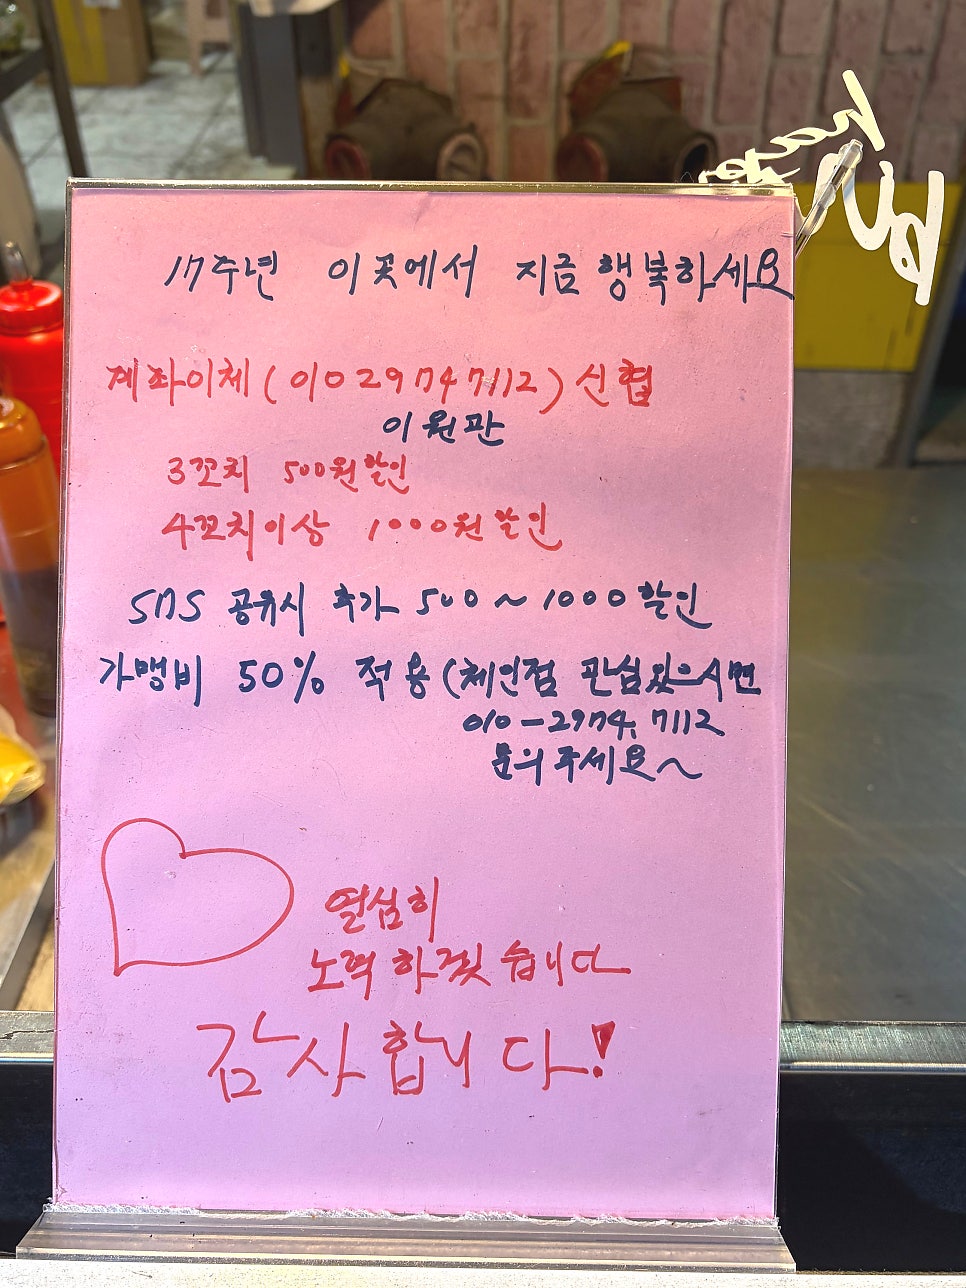 17주년 이곳에서 지금 행복하세요
계좌이체 (010 2974 7112) 신협
이원관
3꼬치 500원 할인
4꼬치이상 1000원 할인
SNS 공유시 추가 500~1000 할인
가맹비 50% 적용 (체인점 관심있으시면
010-2974.7112
문의주세요~
열심히
노력하겠습니다
감사합니다!